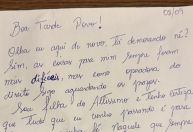 08/09
Boa Tarde Povo!
Olha eu aqui de novo, Tá demorando né?
Sim, as coisas para mim sempre foram
mais difíceis, mas como operadora do
direito sigo aguardando os prazos.
Sou filha do Altíssimo e tenho certeza
que tudo que eu venho passando é para
naquele que sempre